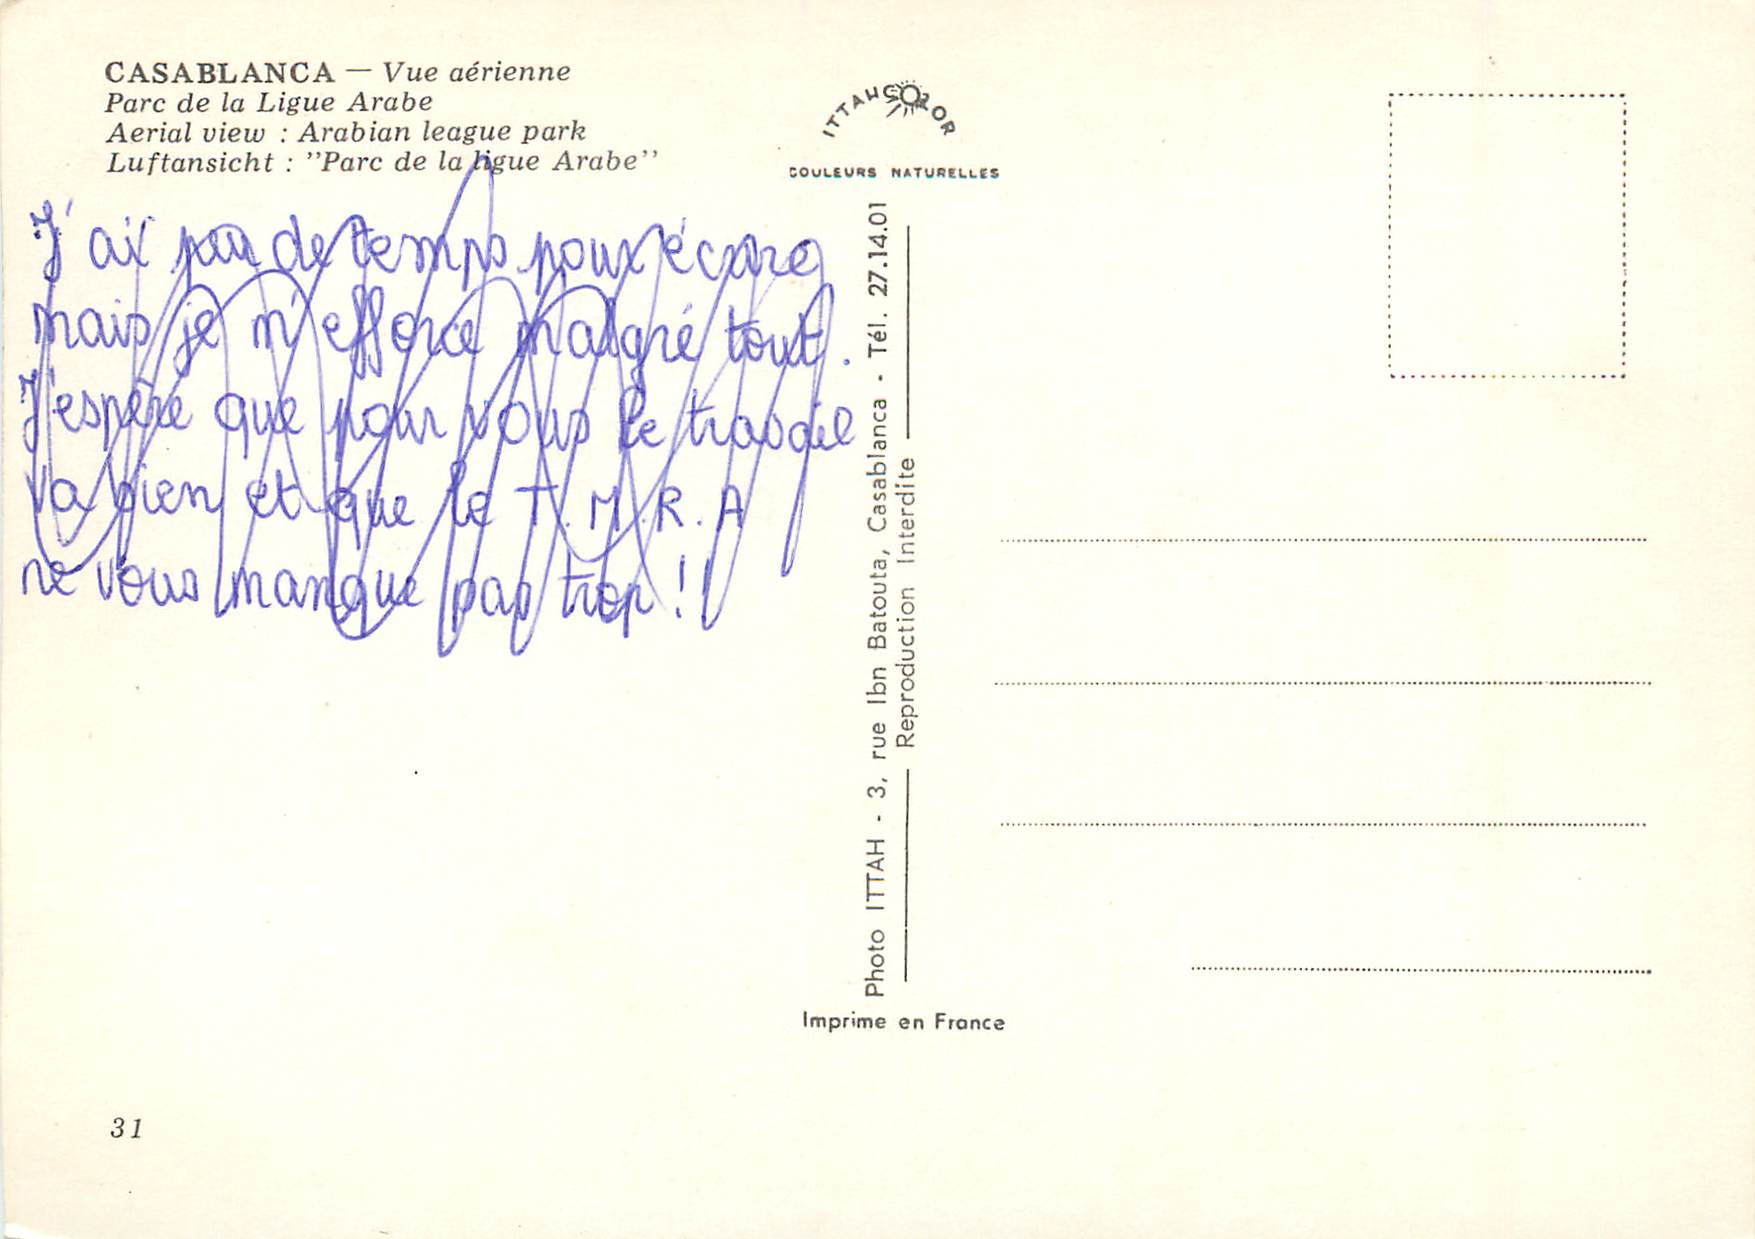 CASABLANCA — Vue aérienne
Parc de la Ligue Arabe
Aerial view : Arabian league park
Luftansicht : "Parc de la ligue Arabe"
ITTAHCOLOR
COULEURS NATURELLES
J'ai peu de temps pour écrire
mais je m'efforce malgré tout.
J'espère que pour vous le travail
va bien et que le T.M.R.A
ne vous manque pas trop !!
Photo ITTAH - 3, rue Ibn Batouta, Casablanca - Tél. 27.14.01
Reproduction Interdite
Imprime en France
31